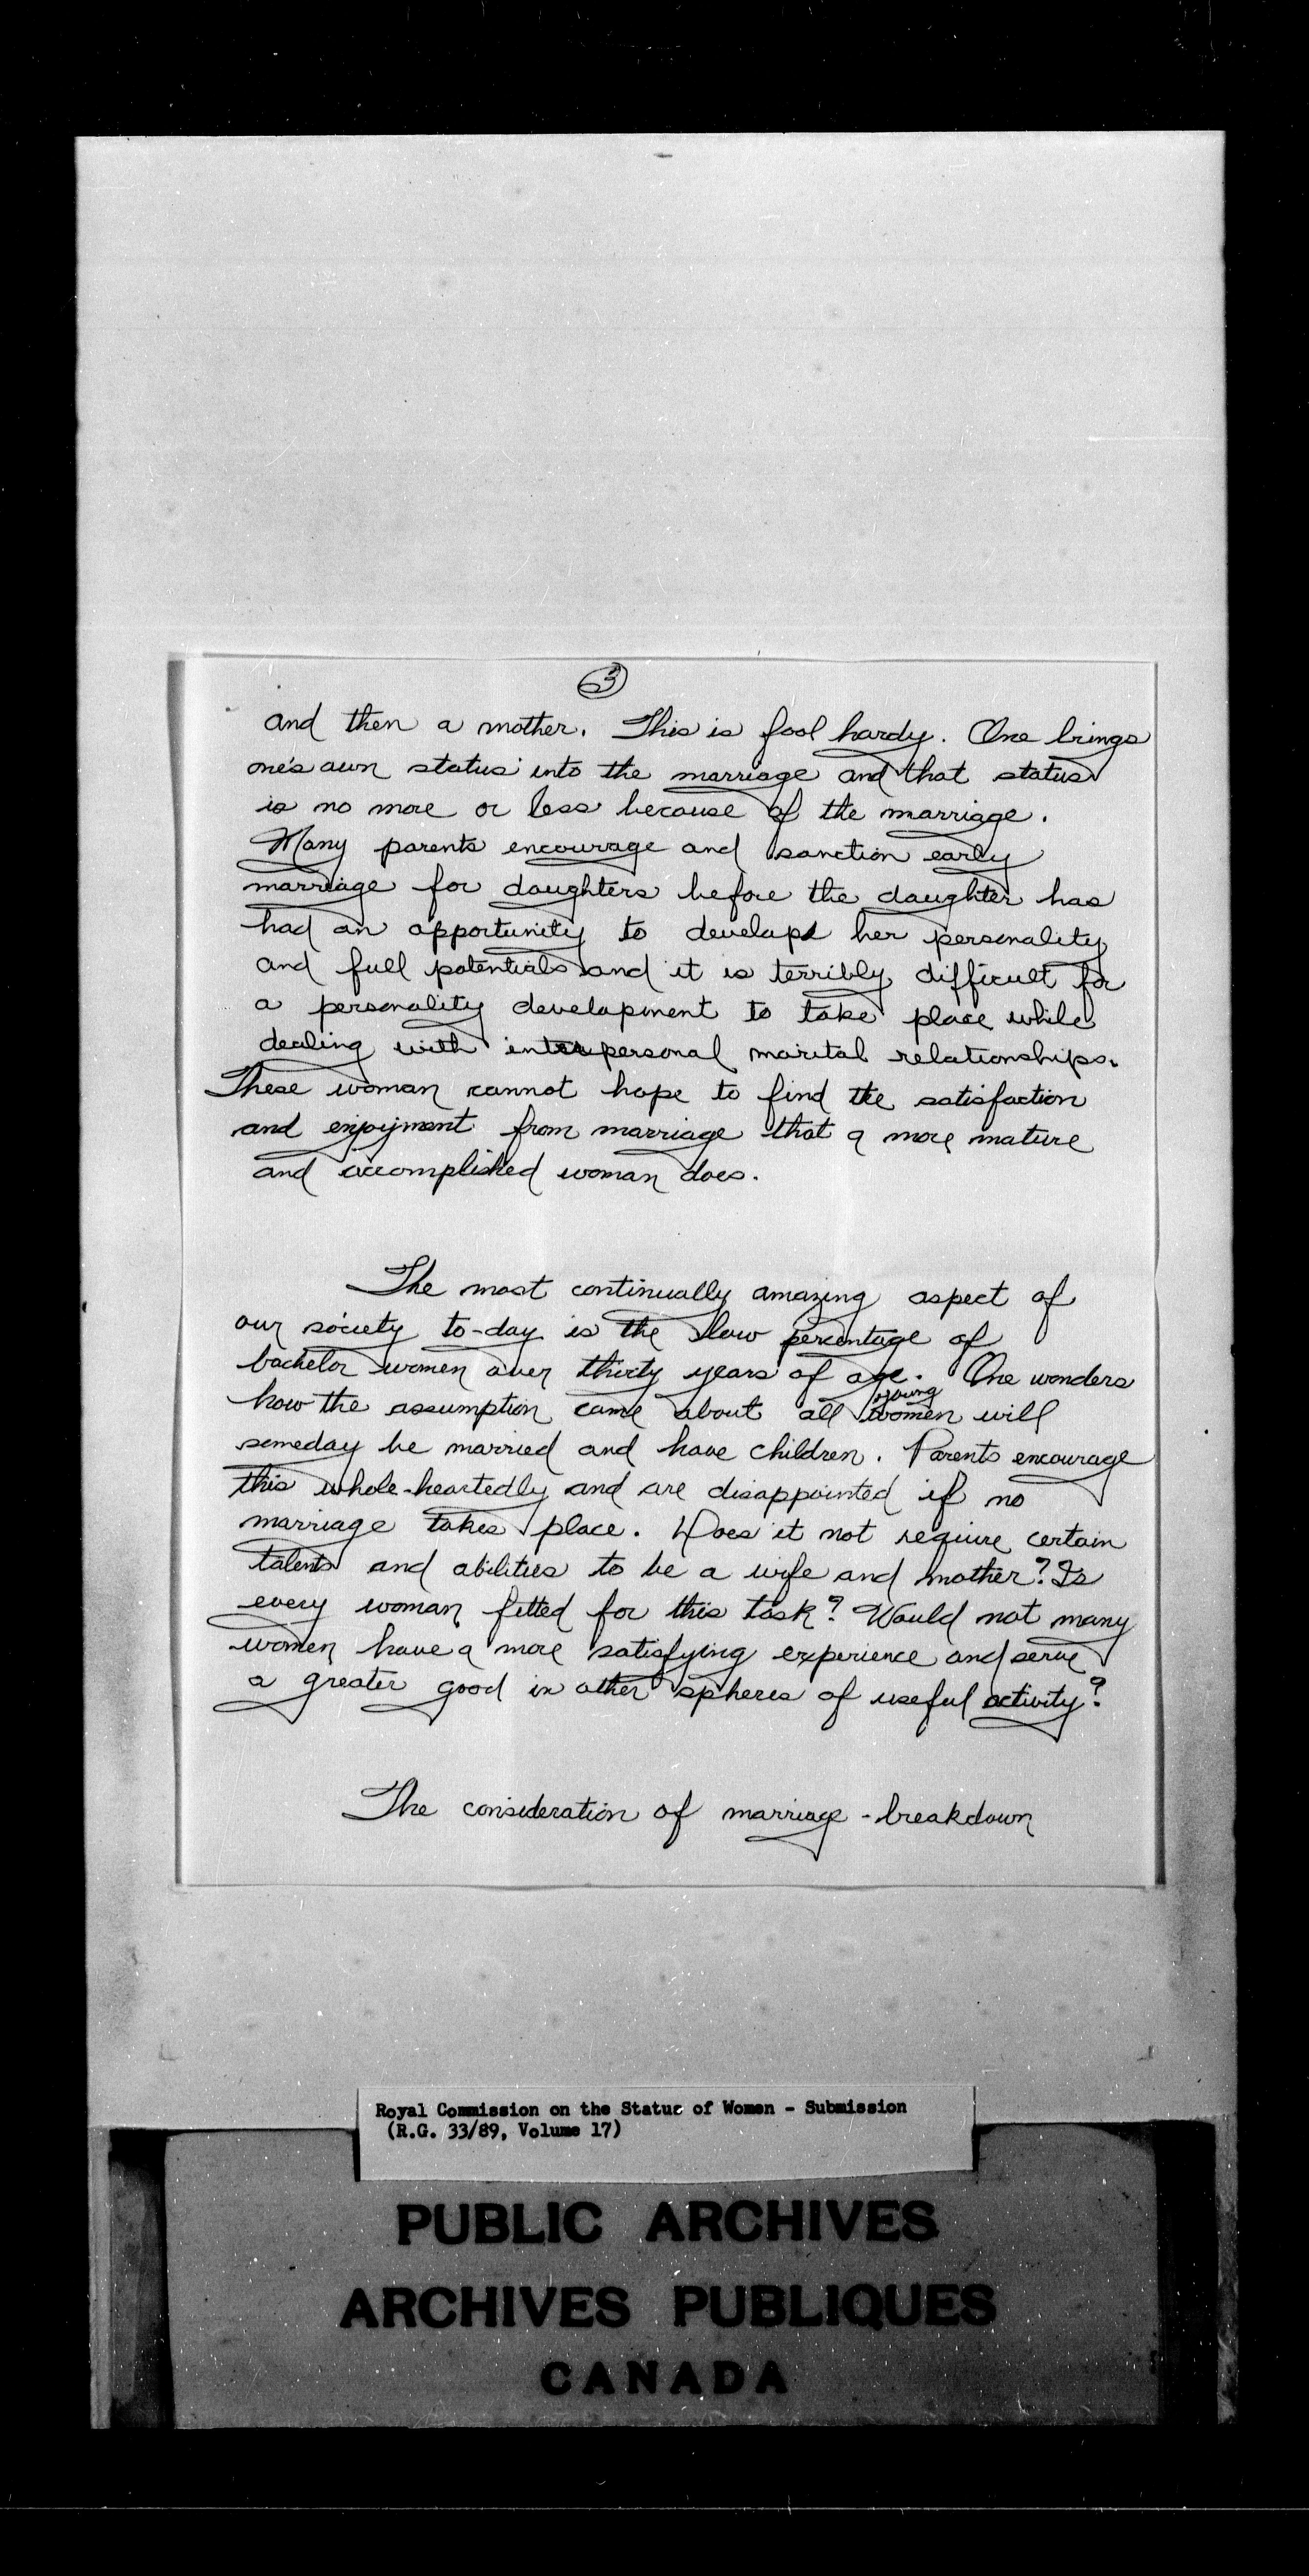 3
and then a mother. This is fool hardy. One brings
one's own status into the marriage and that status
is no more or less because of the marriage.
Many parents encourage and sanction early
marriage for daughters before the daughter has
had an opportunity to develop her personality
and full potentials and it is terribly difficult for
a personality development to take place while
dealing with interpersonal marital relationships.
These woman cannot hope to find the satisfaction
and enjoyment from marriage that a more mature
and accomplished woman does.
The most continually amazing aspect of
our society to-day is the low percentage of
bachelor women over thirty years of age. One wonders
how the assumption came about all young women will
someday be married and have children. Parents encourage
this whole-heartedly and are disappointed if no
marriage takes place. Does it not require certain
talents and abilities to be a wife and mother? Is
every woman fitted for this task? Would not many
women have a more satisfying experience and serve
a greater good in other spheres of useful activity?
The consideration of marriage-breakdown
Royal Commission on the Status of Women - Submission
(R.G. 33/89, Volume 17)
PUBLIC ARCHIVES
ARCHIVES PUBLIQUES
CANADA